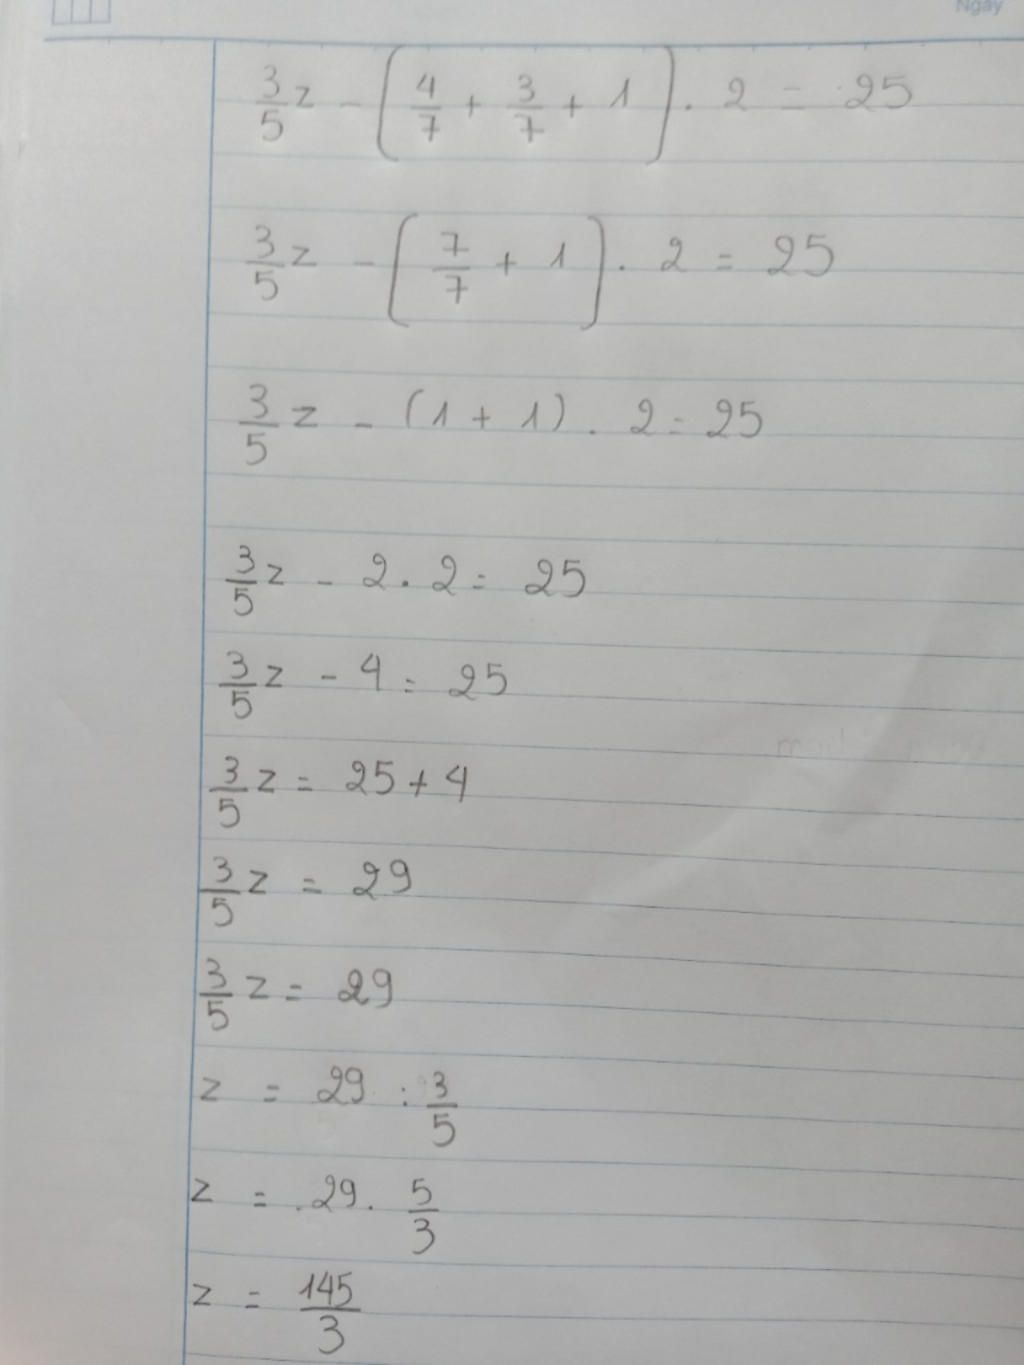 Ngày
3/5 z - (4/7 + 3/7 + 1) . 2 = 25
3/5 z - (7/7 + 1) . 2 = 25
3/5 z - (1 + 1) . 2 = 25
3/5 z - 2 . 2 = 25
3/5 z - 4 = 25
3/5 z = 25 + 4
3/5 z = 29
3/5 z = 29
z = 29 : 3/5
z = 29 . 5/3
z = 145/3